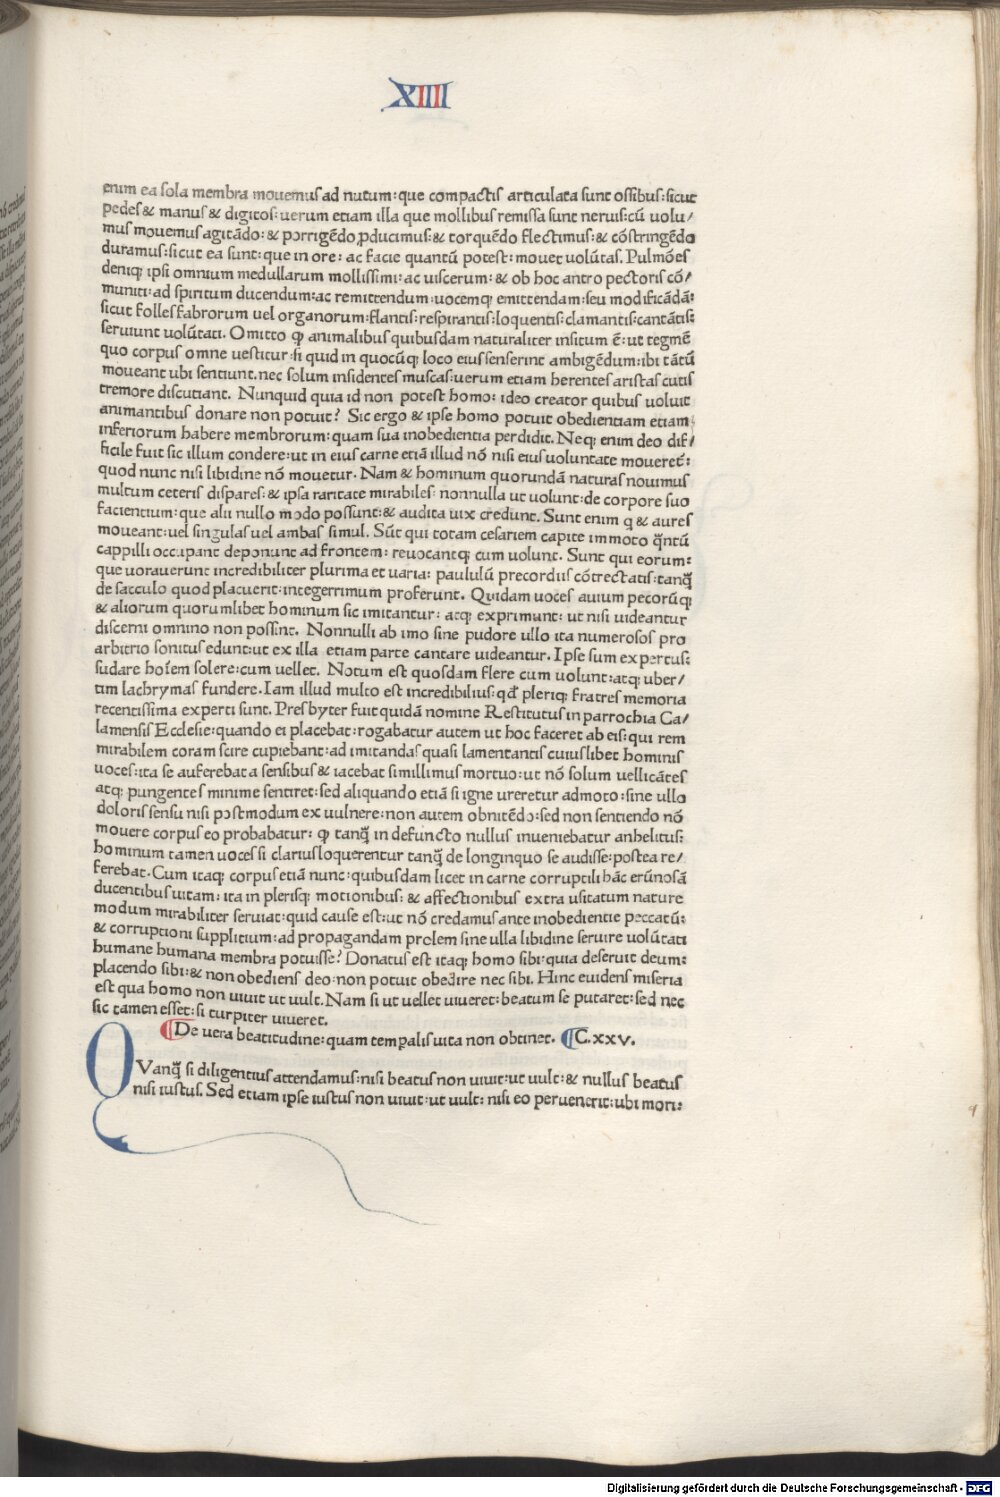 XIIII
enim ea sola membra mouemus ad nutum: que compactis articulata sunt ossibus: sicut
pedes & manus & digitos: uerum etiam illa que mollibus remissa sunt neruis: cū uolu/
mus mouemus agitādo: & porrigēdo ꝓducimus: & torquēdo flectimus: & cōstringēdo
duramus: sicut ea sunt: que in ore: ac facie quantū potest: mouet uolūtas. Pulmōes
deniqꝫ ipsi omnium medullarum mollissimi: ac uiscerum: & ob hoc antro pectoris cō/
muniti: ad spiritum ducendum: ac remittendum: uocemqꝫ emittendam: seu modificādā:
sicut folles fabrorum uel organorum: flantis: respirantis: loquentis: clamantis: cantātis:
seruiunt uolūtati. Omitto ꝙ animalibus quibusdam naturaliter insitum ē: ut tegmē
quo corpus omne uestitur: si quid in quocūqꝫ loco eius senserint ambigēdum: ibi tātū
moueant ubi sentiunt. nec solum insidentes muscas: uerum etiam herentes aristas cutis
tremore discutiant. Nunquid quia id non potest homo: ideo creator quibus uoluit
animantibus donare non potuit? Sic ergo & ipse homo potuit obedientiam etiam
inferiorum habere membrorum: quam sua inobedientia perdidit. Neqꝫ enim deo dif/
ficile fuit sic illum condere: ut in eius carne etiā illud nō nisi eius uoluntate moueret̄:
quod nunc nisi libidine nō mouetur. Nam & hominum quorundā naturas nouimus
multum ceteris dispares: & ipsa raritate mirabiles: nonnulla ut uolunt: de corpore suo
facientium: que alii nullo modo possunt: & audita uix credunt. Sunt enim q & aures
moueant: uel singulas uel ambas simul. Sūt qui totam cesariem capite immoto q̄ntū
cappilli occupant deponunt ad frontem: reuocantqꝫ cum uolunt. Sunt qui eorum:
que uorauerunt incredibiliter plurima et uaria: paululū precordiis cōtrectatis: tanq̄
de sacculo quod placuerit: integerrimum proferunt. Quidam uoces auium pecorūqꝫ
& aliorum quorumlibet hominum sic imitantur: atqꝫ exprimunt: ut nisi uideantur
discerni omnino non possint. Nonnulli ab imo sine pudore ullo ita numerosos pro
arbitrio sonitus edunt: ut ex illa etiam parte cantare uideantur. Ipse sum expertus:
sudare hoīem solere: cum uellet. Notum est quosdam flere cum uolunt: atqꝫ uber/
tim lachrymas fundere. Iam illud multo est incredibilius: qđ pleriqꝫ fratres memoria
recentissima experti sunt. Presbyter fuit quidā nomine Restitutus in parrochia Ca/
lamensis Ecclesie: quando ei placebat: rogabatur autem ut hoc faceret ab eis: qui rem
mirabilem coram scire cupiebant: ad imitandas quasi lamentantis cuiuslibet hominis
uoces: ita se auferebat a sensibus & iacebat simillimus mortuo: ut nō solum uellicātes
atqꝫ pungentes minime sentiret: sed aliquando etiā si igne ureretur admoto: sine ullo
doloris sensu nisi postmodum ex uulnere: non autem obnitēdo: sed non sentiendo nō
mouere corpus eo probabatur: ꝙ tanq̄ in defuncto nullus inueniebatur anhelitus:
hominum tamen uoces si clarius loquerentur tanq̄ de longinquo se audisse: postea re/
ferebat. Cum itaqꝫ corpus etiā nunc: quibusdam licet in carne corruptili hāc erūnosā
ducentibus uitam: ita in plerisqꝫ motionibus: & affectionibus extra usitatum nature
modum mirabiliter seruiat: quid cause est: ut nō credamus ante inobedientie peccatū:
& corruptioni supplitium: ad propagandam prolem sine ulla libidine seruire uolūtati
humane humana membra potuisse? Donatus est itaqꝫ homo sibi: quia deseruit deum:
placendo sibi: & non obediens deo: non potuit obedire nec sibi. Hinc euidens miseria
est qua homo non uiuit ut uult. Nam si ut uellet uiueret: beatum se putaret: sed nec
sic tamen esset: si turpiter uiueret.
¶De uera beatitudine: quam temꝑalis uita non obtinet. ¶C. xxv.
QVanq̄ si diligentius attendamus: nisi beatus non uiuit: ut uult: & nullus beatus
nisi iustus. Sed etiam ipse iustus non uiuit: ut uult: nisi eo peruenerit: ubi mori:
Digitalisierung gefördert durch die Deutsche Forschungsgemeinschaft - DFG